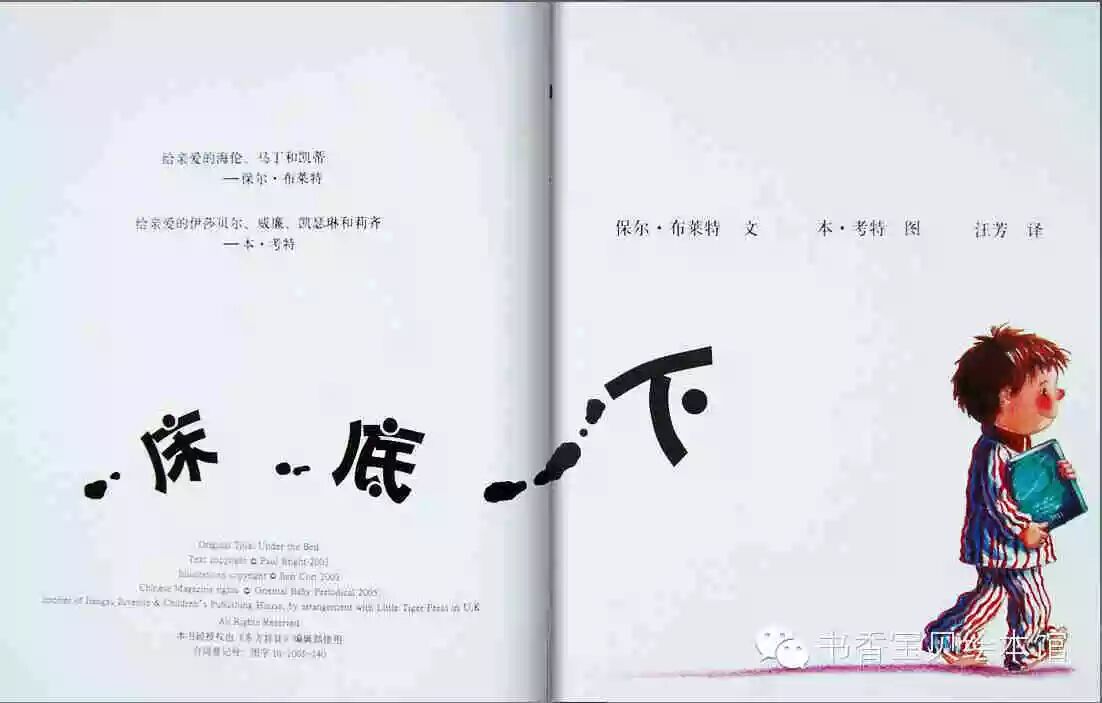 给亲爱的海伦、马丁和凯蒂
—保尔·布莱特
给亲爱的伊莎贝尔、威廉、凯瑟琳和莉齐
—本·考特
保尔·布莱特 文 本·考特 图 汪芳 译
床底下
Original Title: Under the Bed
Text copyright © Paul Bright 2003
Illustrations copyright © Ben Cort 2003
Chinese Magazine rights © Oriental Baby Periodical 2005
member of Jiangsu Juvenile & Children's Publishing House, by arrangement with Little Tiger Press in U.K
All Rights Reserved
本书经授权由《东方娃娃》编辑部使用
合同登记号：图字10-2005-240
书香宝贝绘本馆